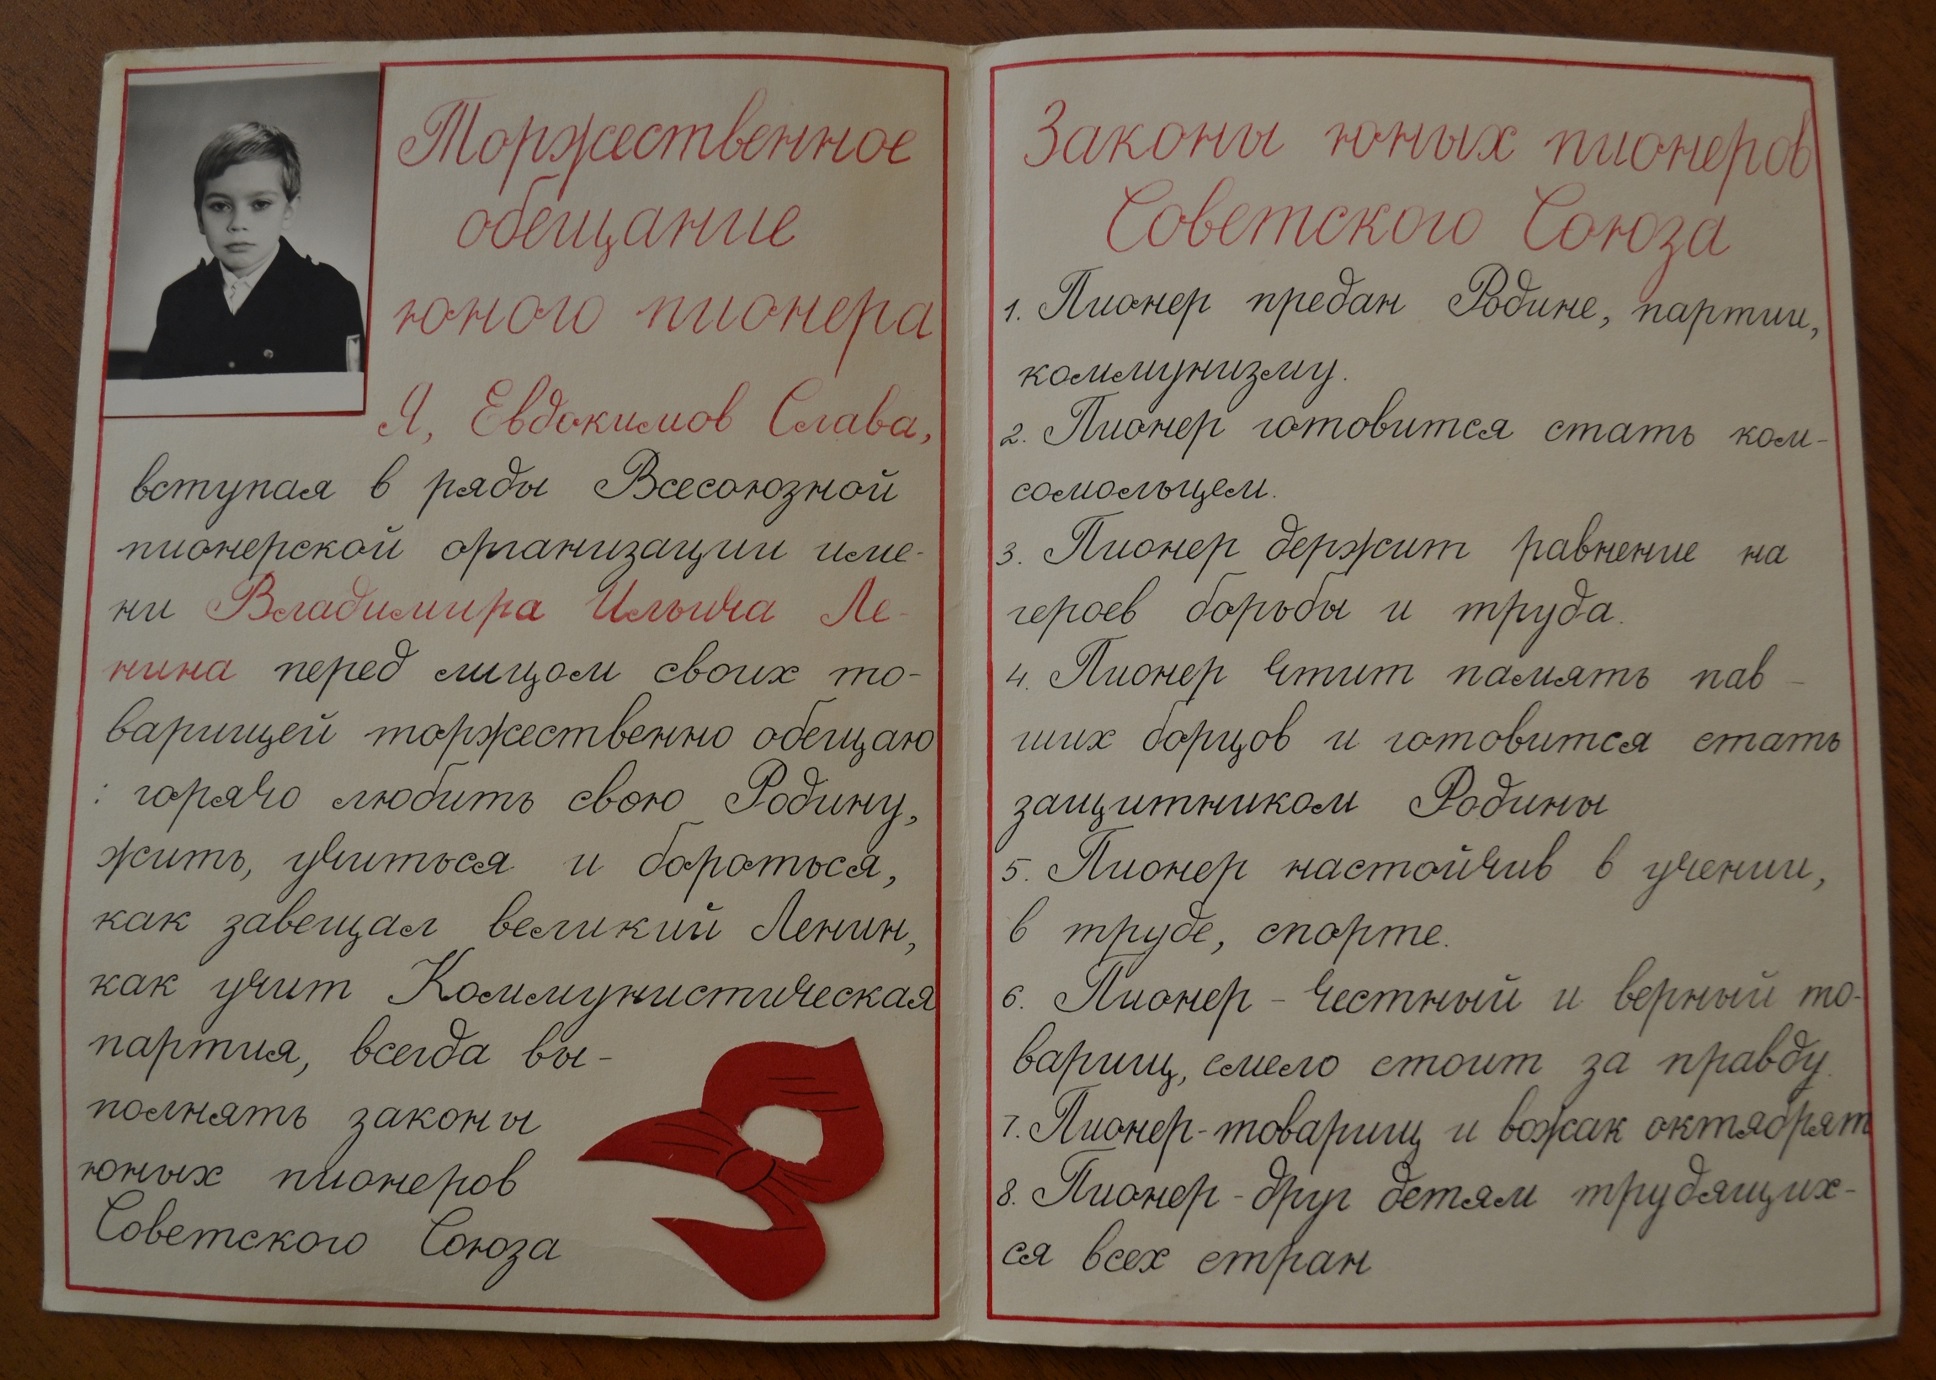 Торжественное
обещание
юного пионера
Я, Евдокимов Слава,
вступая в ряды Всесоюзной
пионерской организации име-
ни Владимира Ильича Ле-
нина перед лицом своих то-
варищей торжественно обещаю
: горячо любить свою Родину,
жить, учиться и бороться,
как завещал великий Ленин,
как учит Коммунистическая
партия, всегда вы-
полнять законы
юных пионеров
Советского Союза
Законы юных пионеров
Советского Союза
1. Пионер предан Родине, партии,
коммунизму.
2. Пионер готовится стать ком-
сомольцем.
3. Пионер держит равнение на
героев борьбы и труда.
4. Пионер чтит память пав-
ших борцов и готовится стать
защитником Родины
5. Пионер настойчив в учении,
в труде, спорте.
6. Пионер - честный и верный то-
варищ, смело стоит за правду.
7. Пионер-товарищ и вожак октябрят
8. Пионер-друг детям трудящих-
ся всех стран